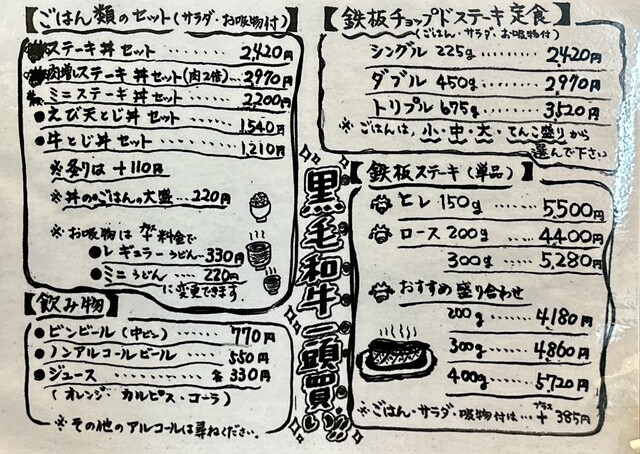 【ごはん類のセット(サラダ・お吸物付)】
ステーキ丼セット……… 2,420円
肉増しステーキ丼セット(肉2倍)… 2,970円
ミニステーキ丼セット…… 2,200円
●えび天とじ丼セット…… 1,540円
●牛とじ丼セット…… 1,210円
※炙りは +110円
※丼のごはんの大盛… 220円
※お吸物は
プラス料金で
●レギュラーうどん… 330円
●ミニうどん…… 220円
に変更できます
【飲み物】
●ビンビール(中ビン)…… 770円
●ノンアルコールビール…… 550円
●ジュース…… 各330円
(オレンジ・カルピス・コーラ)
※その他のアルコールは尋ねください。
黒毛和牛一頭買い!!
【鉄板チョップドステーキ定食】
(ごはん・サラダ・お吸物付)
シングル 225g…… 2,420円
ダブル 450g…… 2,970円
トリプル 675g…… 3,520円
※ごはんは、小・中・大・てんこ盛りから
選んで下さい
【鉄板ステーキ(単品)】
ヒレ 150g…… 5,500円
ロース 200g…… 4,400円
300g…… 5,280円
おすすめ盛り合わせ
200g…… 4,180円
300g…… 4,860円
400g…… 5,720円
※ごはん・サラダ・吸物付は…プラス + 385円